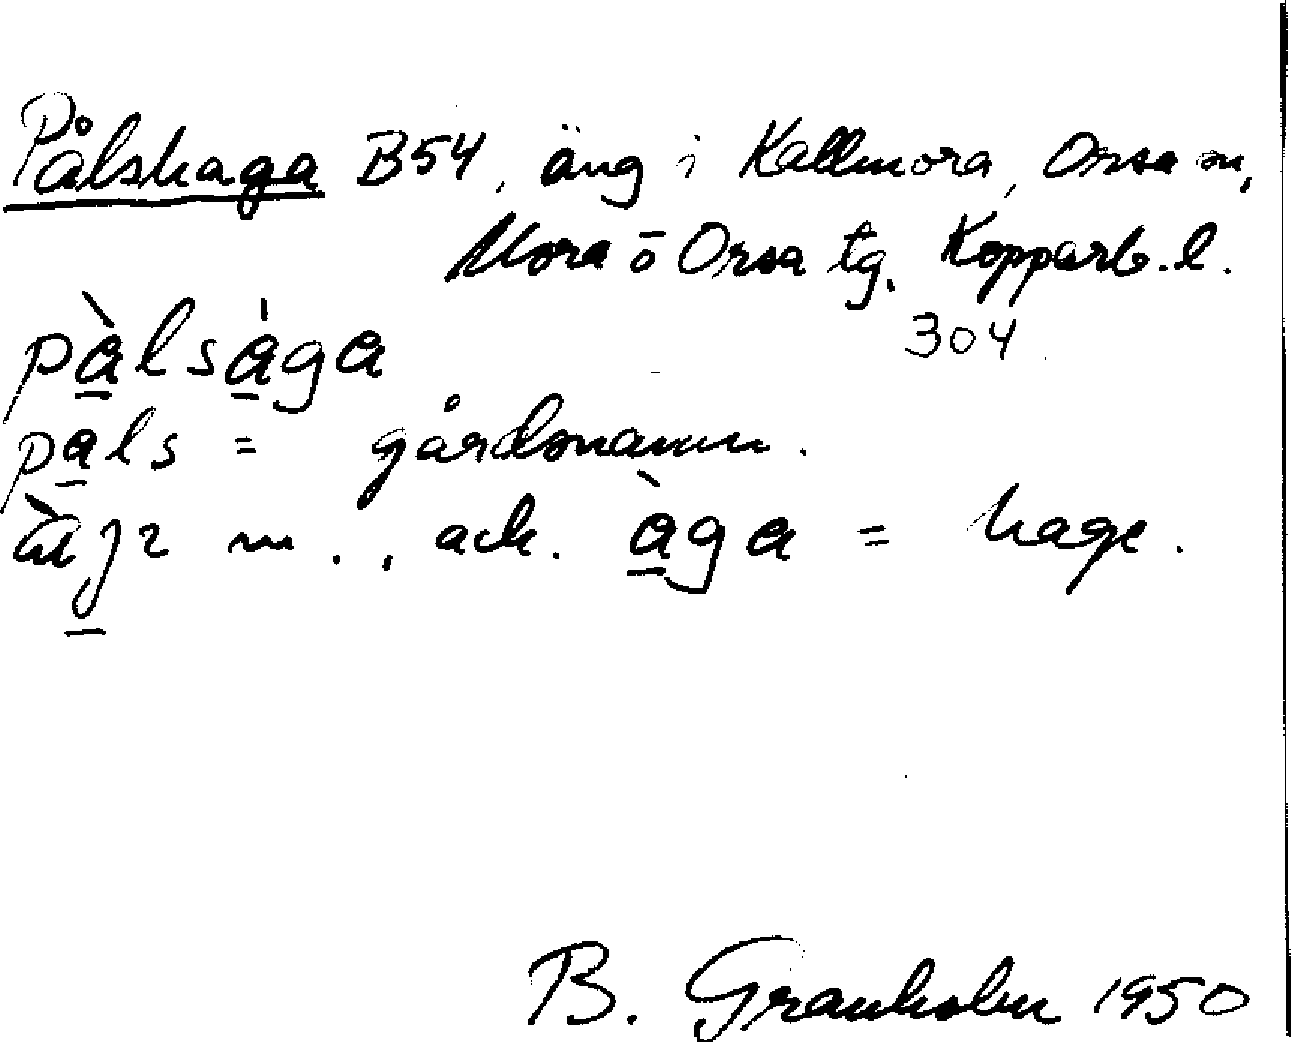 Pålshaga B54, äng i Kallmora, Orsa sn,
Mora o Orsa tg. Kopparb. l.
304
pàlsága
pals = gårdsnamn.
àɡ̣ɪ m., ack. àga = hage.
B. Granholm 1950